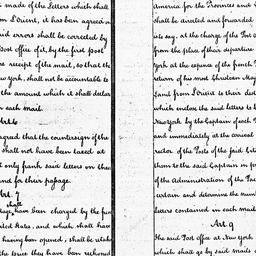 made of the Letters which shall
on L'orient, it has been agreed on
said errors shall be corrected by
Post office of it, by the first post
the receipt of the mail, so that the
New york, shall not be accountable to
the amount which it shall declare
in each mail.
Art. 6
agreed that the countersign of the
shall not have been taxed at
not only frank said letters on the
and for their passage.
Art. 7
shall
have been charged by the
Rata, and which shall have
having been opened, shall be retaken
the price they have been reckoned
America for the Provinces and
shall be directed and forwarded
is to say, at the charge of the Post
from the place of their departure
York at the expence of the french
return of his most Christian Majesty
land from L'orient to their
which enclose the said letters to be
New york by the Captain of each
and immediately at the arrival
rector of the Posts of the said
them to the said Captain in
of the Administration of the
certain and determine the number
letters contained in each mail
Art. 9
The said Post office at New york
which shall go by said mails